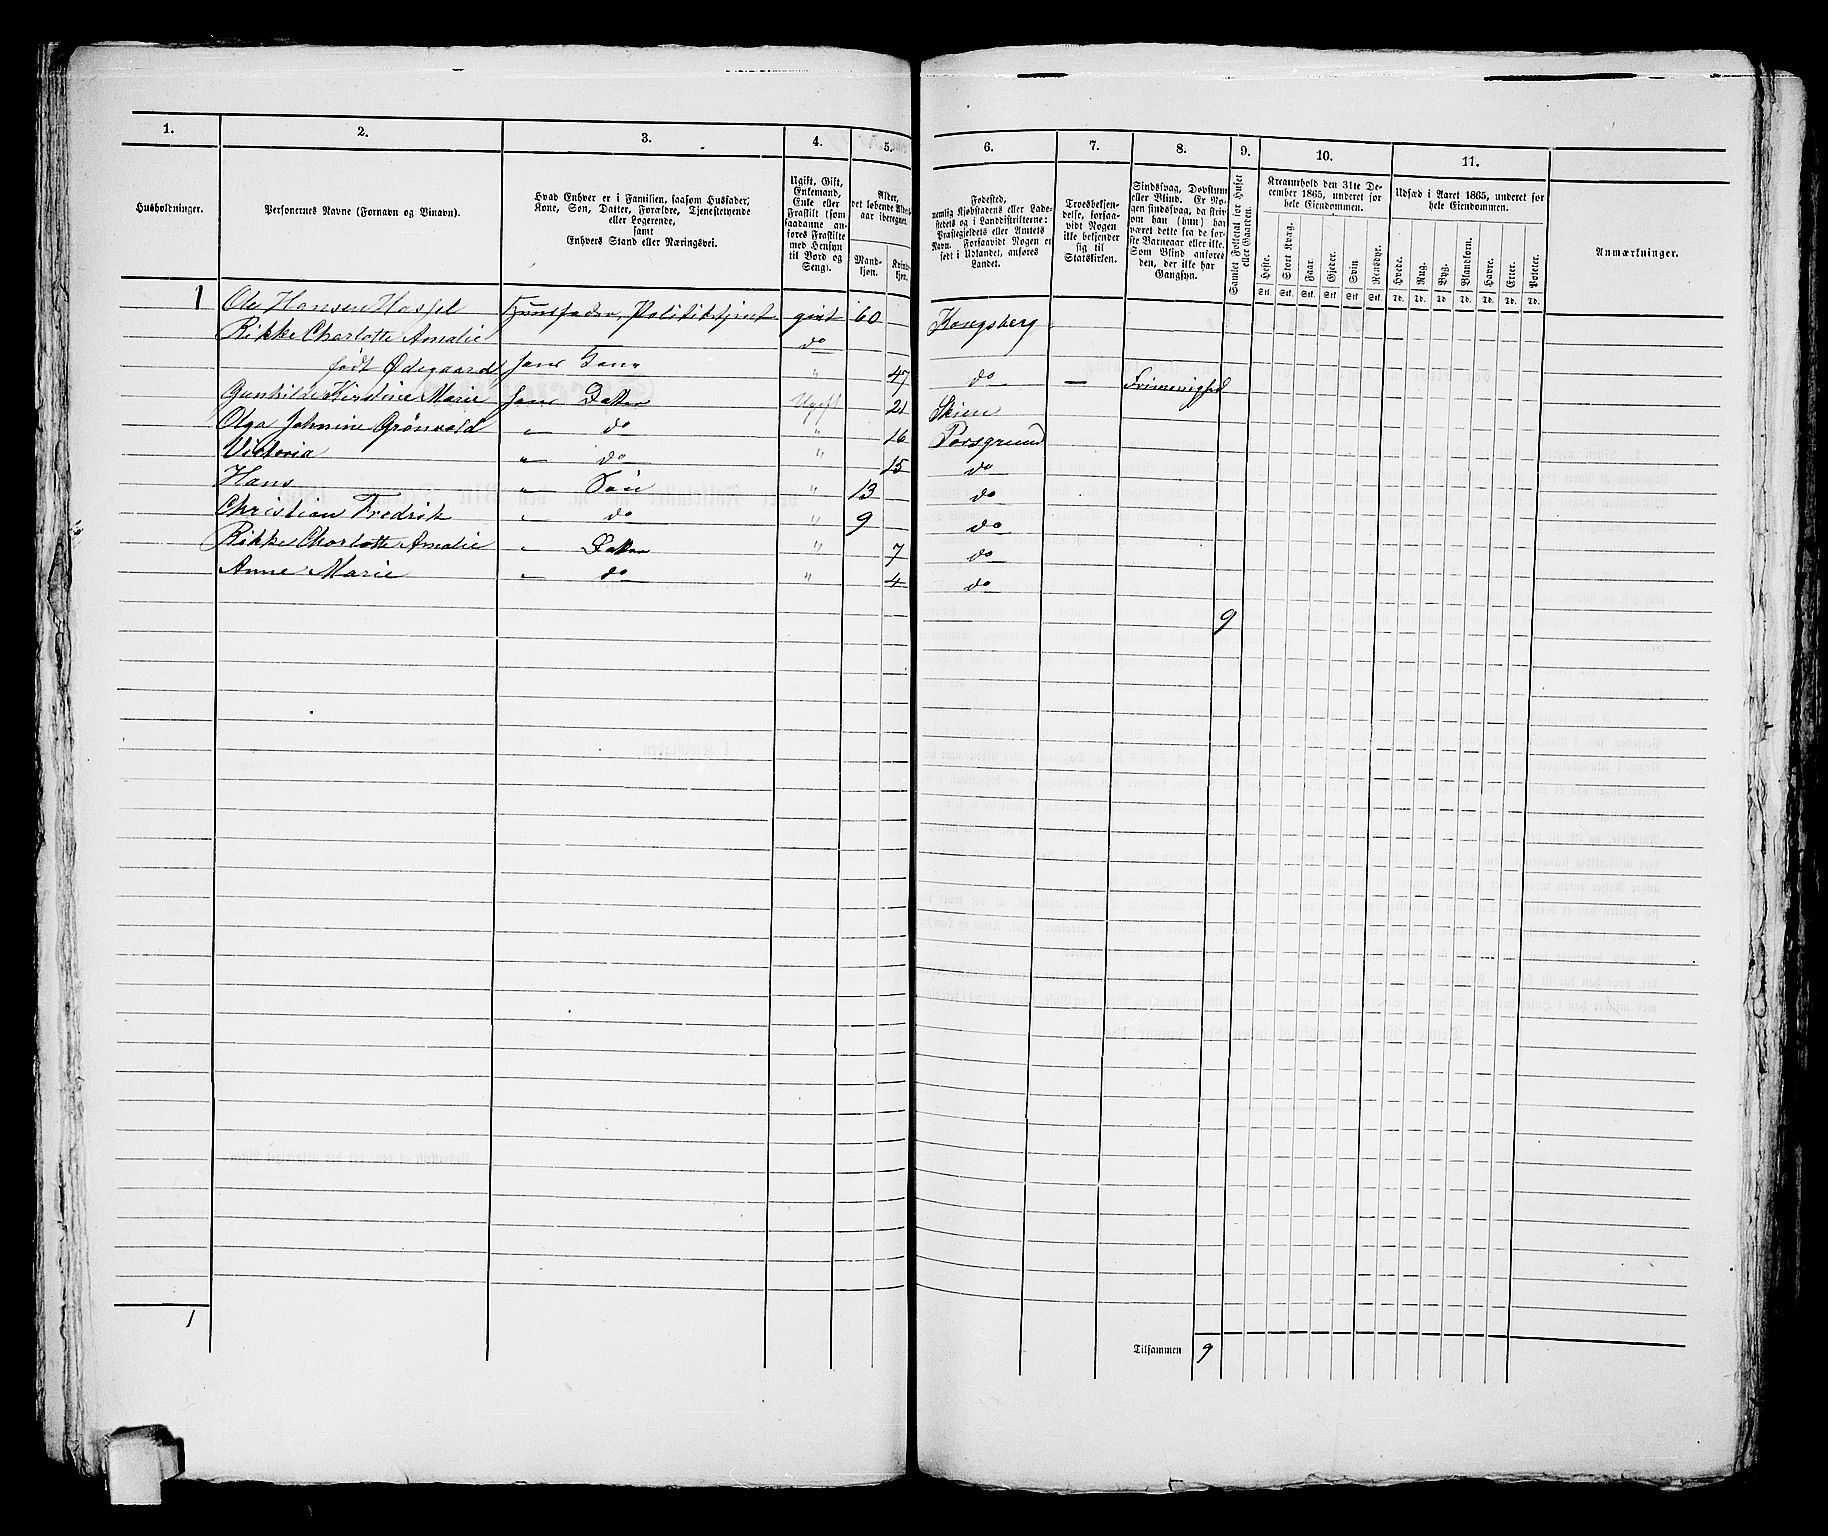 1. 2. 3. 4. 5. 6. 7. 8. 9. 10. 11.
Husholdninger.
Personernes Navne (Fornavn og Vinavn).
Hvad Enhver er i Familien, saasom Husfader,
Kone, Søn, Datter, Forældre, Tjenestetyende
eller Logerende,
samt
Enhvers Stand eller Næringsvei.
Ugift, Gift,
Enkemand,
Enke eller
Fraskilt (som
saadanne an-
føres Fraskilte
med Hensyn
til Bord og
Seng).
Alder,
det løbende Alders-
aar iberegnet.
Mand-
kjøn.
Kvinde-
kjøn.
Fødested,
nemlig Kjøbstadens eller Lade-
stedets og i Landdistrikterne:
Præstegjeldets eller Amtets
Navn. Forsaavidt Nogen er
født i Udlandet, anføres
Landet.
Troesbekjen-
delse, forsaa-
vidt Nogen
ikke bekjender
sig til
Statskirken.
Sindssvag, Døvstum
eller Blind. Er No-
gen sindssvag, da skriv
om han (hun) har
været dette fra de før-
ste Barneaar eller ikke.
Som Blind anføres
den, der ikke har
Gangsyn.
Samlet Folketal for Huset
eller Gaarden.
Kreaturhold den 31te De-
cember 1865, underet for
hele Eiendommen.
Heste. Stort Kvæg. Faar. Gjeder. Svin. Rensdyr.
Stk. Stk. Stk. Stk. Stk. Stk.
Udsæd i Aaret 1865, underet for
hele Eiendommen.
Hvede. Rug. Byg. Blandkorn. Havre. Erter. Poteter.
Td. Td. Td. Td. Td. Td. Td.
Anmærkninger.
1 Ole Hansen Husfader, givt 60 Kongsberg
Rikke Charlotte Amalie do
født Ødegaard hans Kone " 47 do —
Gunhilde Kirstine Marie hans Datter Ugift 21 Skien
Olga Johnine Grønvold " do " 16 Porsgrund
Viktoria " do " 15 do
Hans " Søn " 13 do
Christian Fredrik " do " 9 do
Rikke Charlotte Amalie " Datter " 7 do
Anne Marie " do " 4 do
9
1
Tilsammen 9